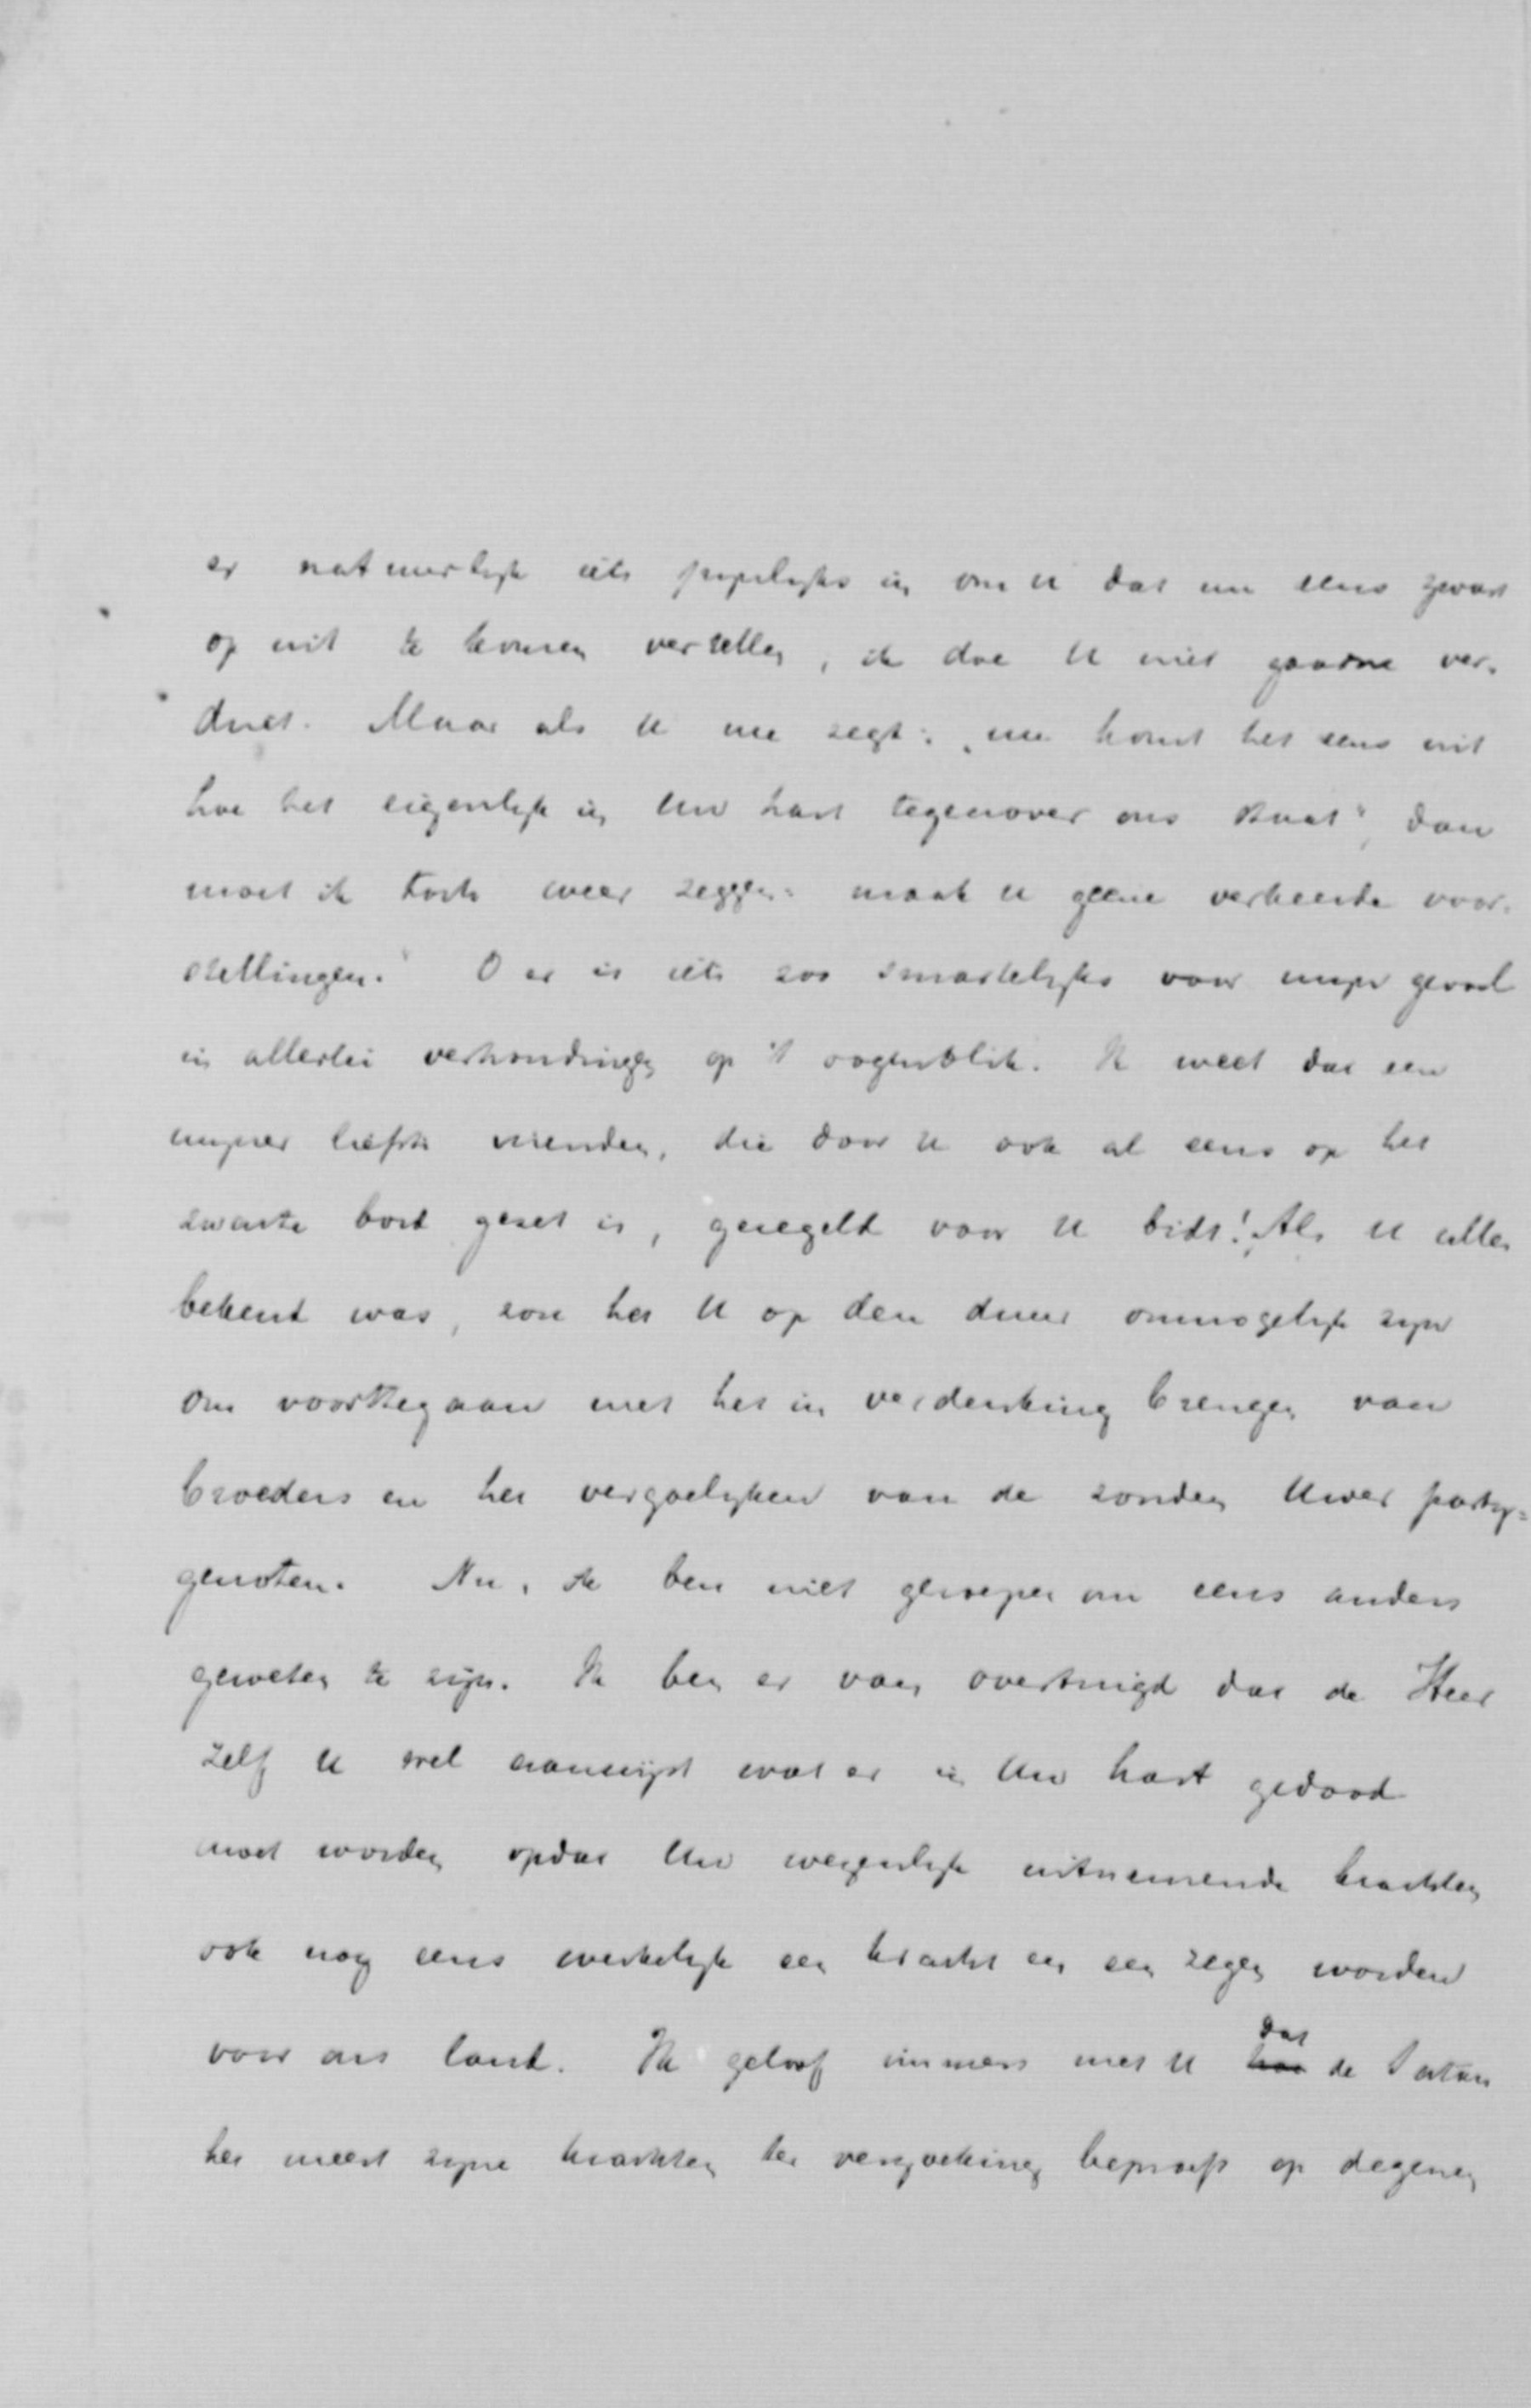 er natuurlyk iets pynlyks in om U dat nu eens zwart
op wit te komen vertellen, ik doe U niet gaarne ver-
driet. Maar als U me zegt: „nu komt het eens uit
hoe het eigenlyk in Uw hart tegenover ons staat", dan
moet ik toch weer zeggen: maak U geene verkeerde voor-
stellingen." O er is iets zoo smartelyks voor myn gevoel
in allerlei verhoudingen op 't oogenblik. Ik weet dat een
myner liefste vrienden, die door U ook al eens op het
zwarte bord gezet is, geregeld voor U bidt! Als U alles
bekend was, zou het U op den duur onmogelyk zyn
om voorttegaan met het in verdenking brengen van
broeders en het vergoelyken van de zonden Uwer party-
genoten. Nu, ik ben niet geroepen om eens anders
geweten te zijn. Ik ben er van overtuigd dat de Heer
zelf U wel aanwijst wat er in Uw hart gedood
moet worden opdat Uw wezenlyk uitnemende krachten
ook nog eens werkelyk een kracht en een zegen worden
voor ons land. Ik geloof immers met U hoe dat de Satan
het meest zyne krachten ter verzoeking beproeft op degenen